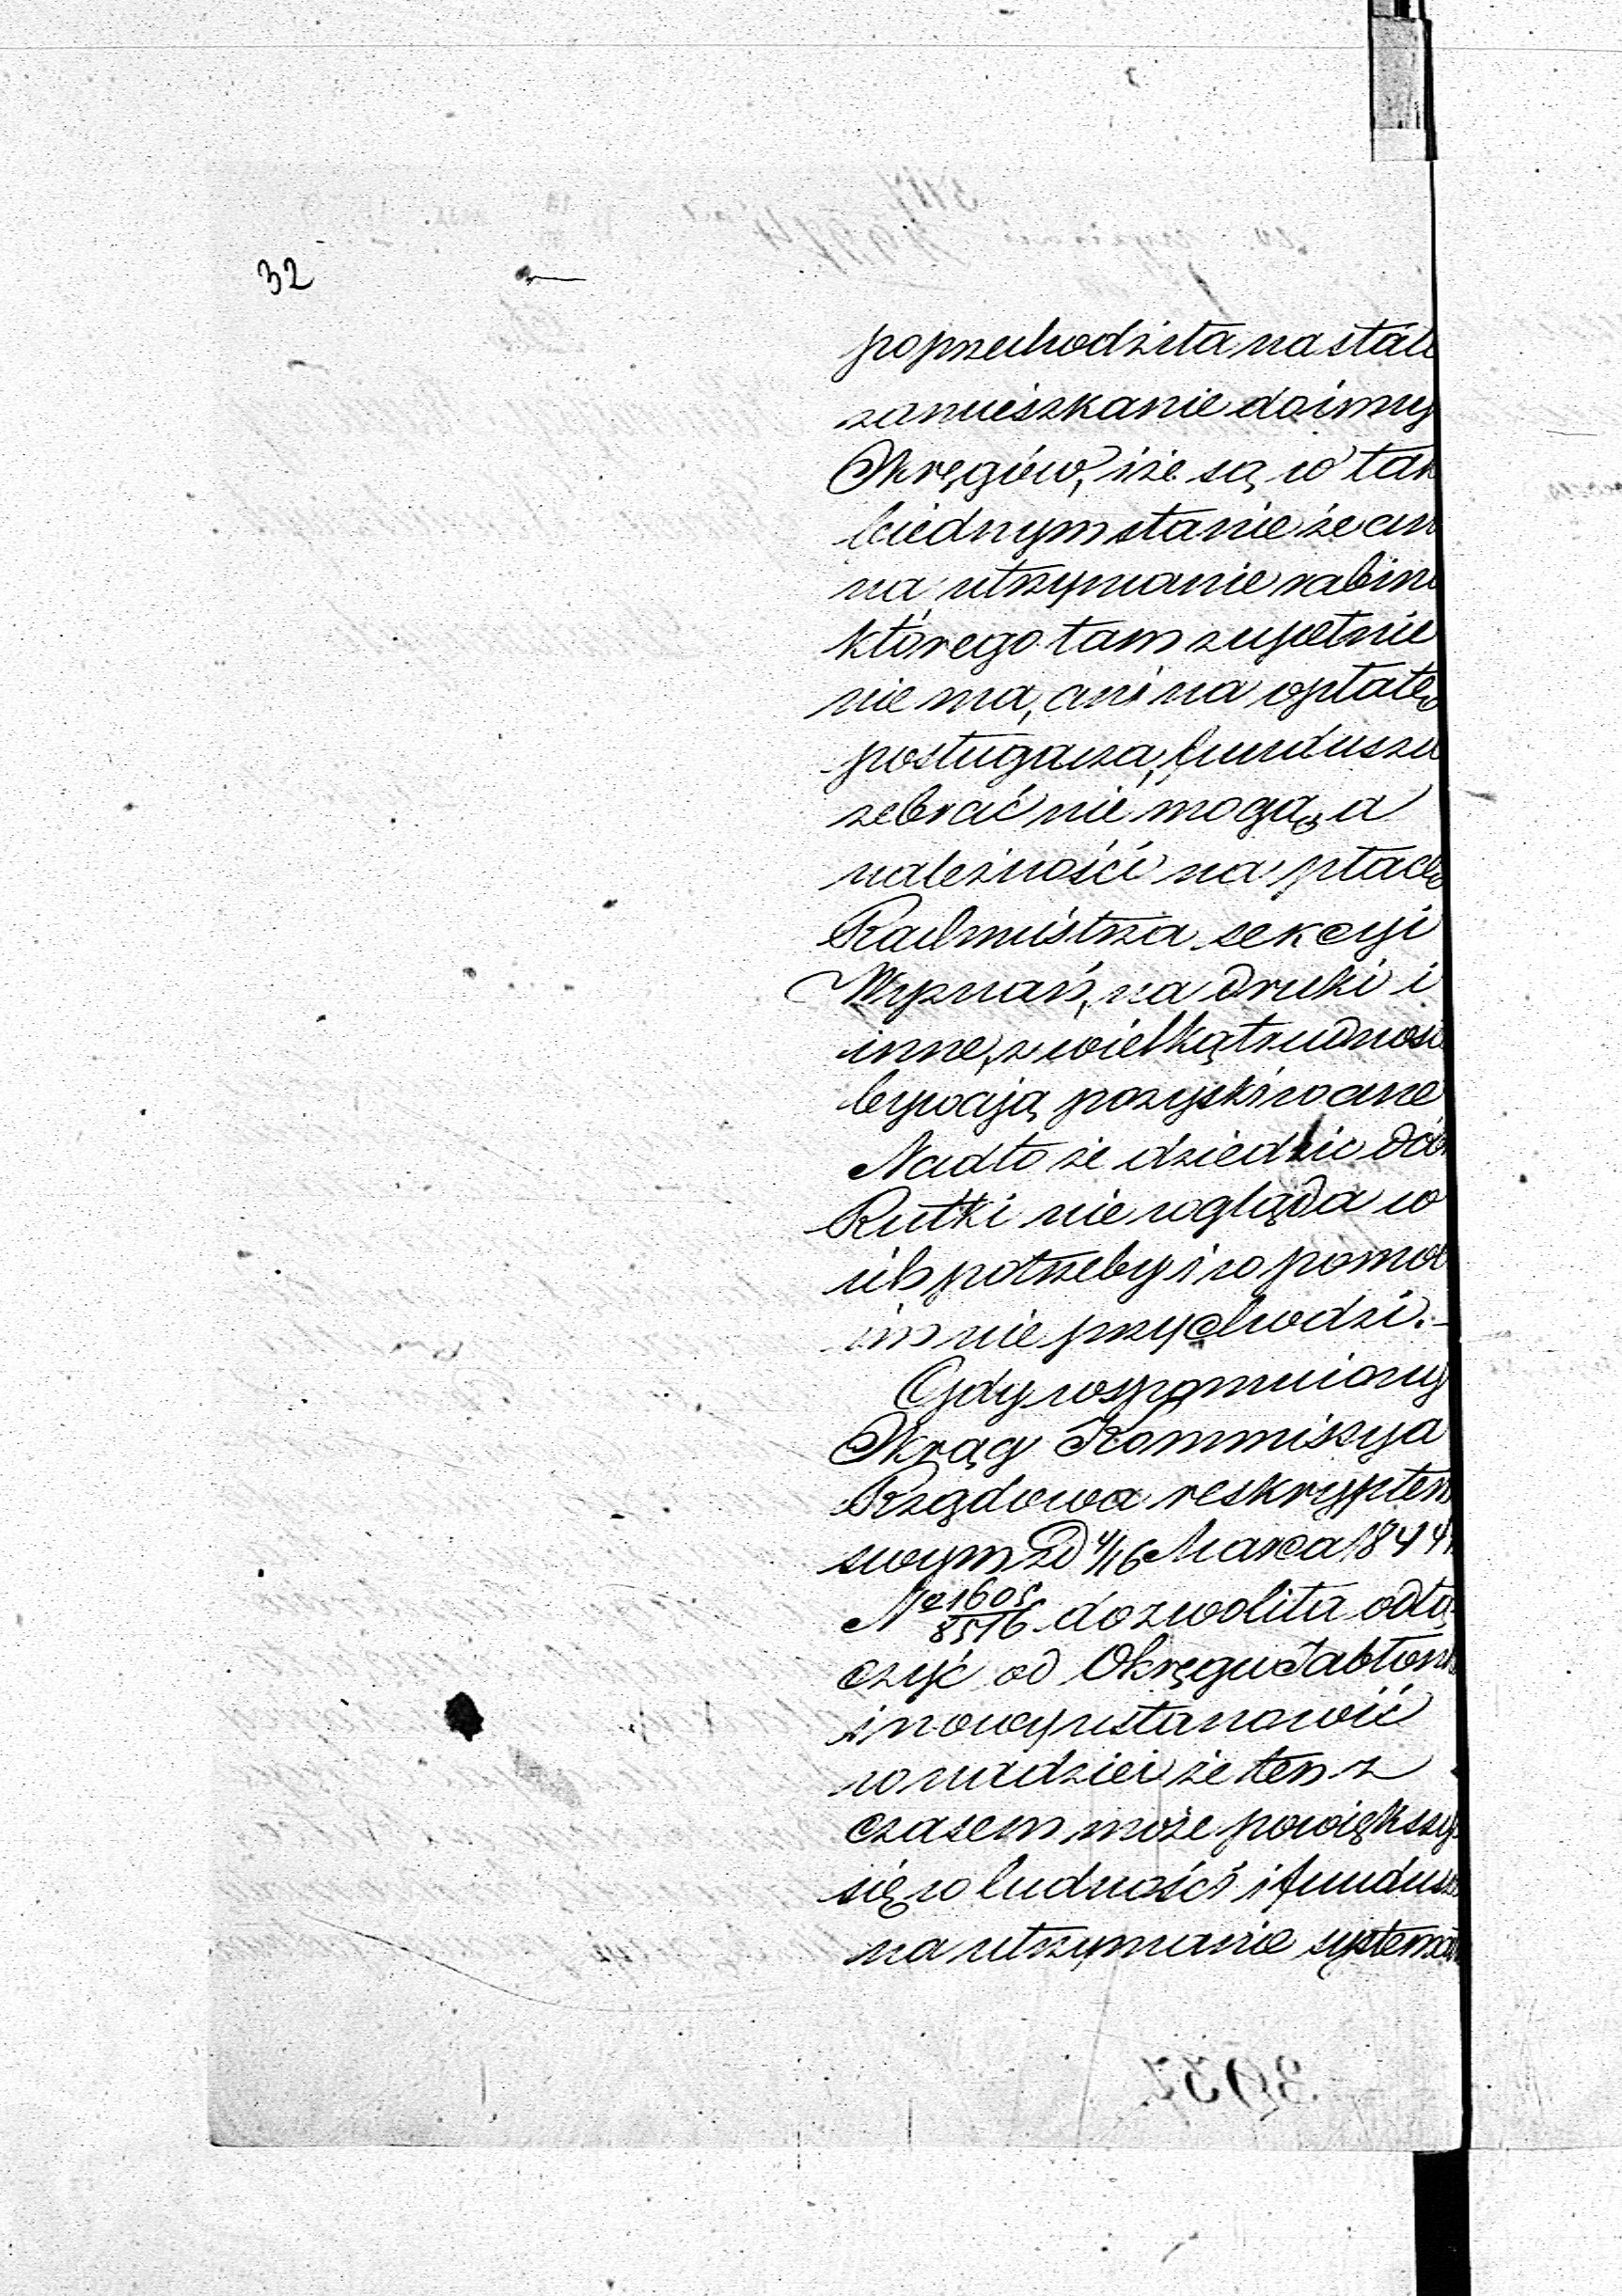 32
poprzechodziła na stałe
zamieszkanie do innych
Okręgów, i że są w tak
biednym stanie że ani
na utrzymanie rabina
którego tam zupełnie
nie ma, ani na opłatę
posługacza, funduszu
zebrać nie mogą, a
należności na płacę
Rachmistrza sekcyi
Wyznań, na druki i
inne, z wielką trudnością
bywają pozyskiwane
Nadto że dziedzic dóbr
Rutki nie wgląda w
ich potrzeby i w pomoc
im nie przychodzi.-
Gdy wspomniony
Okrąg Kommissya
Rządowa reskryptem
swym z d 4/16 Marca 1844
No 1605/8516 dozwoliła odłą
czyć od Okręgu Jabłon
i nowy ustanowić
w nadziei że ten z
czasem może powiększyć
się w ludności i fundusz
na utrzymanie systemat